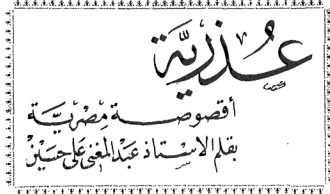 عُذريَّة
أقصوصة مصريَّة
بقلم الاستاذ عبد المغنى على حسين